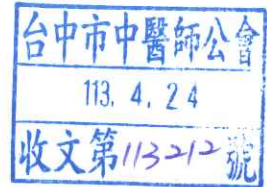 台中市中醫師公會
113. 4. 24
收文第113212號